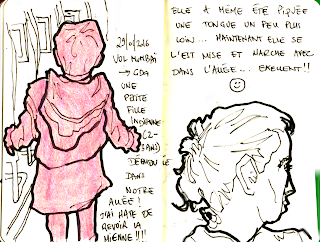 29/01/2016
VOL MUMBAI
→ GOA
UNE
PETITE
FILLE
INDIENNE
(2-
3 ANS)
DÉAMBULE
DANS
NOTRE
ALLÉE!
J'AI HATE DE
REVOIR LA
MIENNE!!!
ELLE A MÊME ÉTÉ PIQUÉE
UNE TONGUE UN PEU PLUS
LOIN... MAINTENANT ELLE SE
L'EST MISE ET MARCHE AVEC
DANS L'ALLÉE... EXELLENT!!